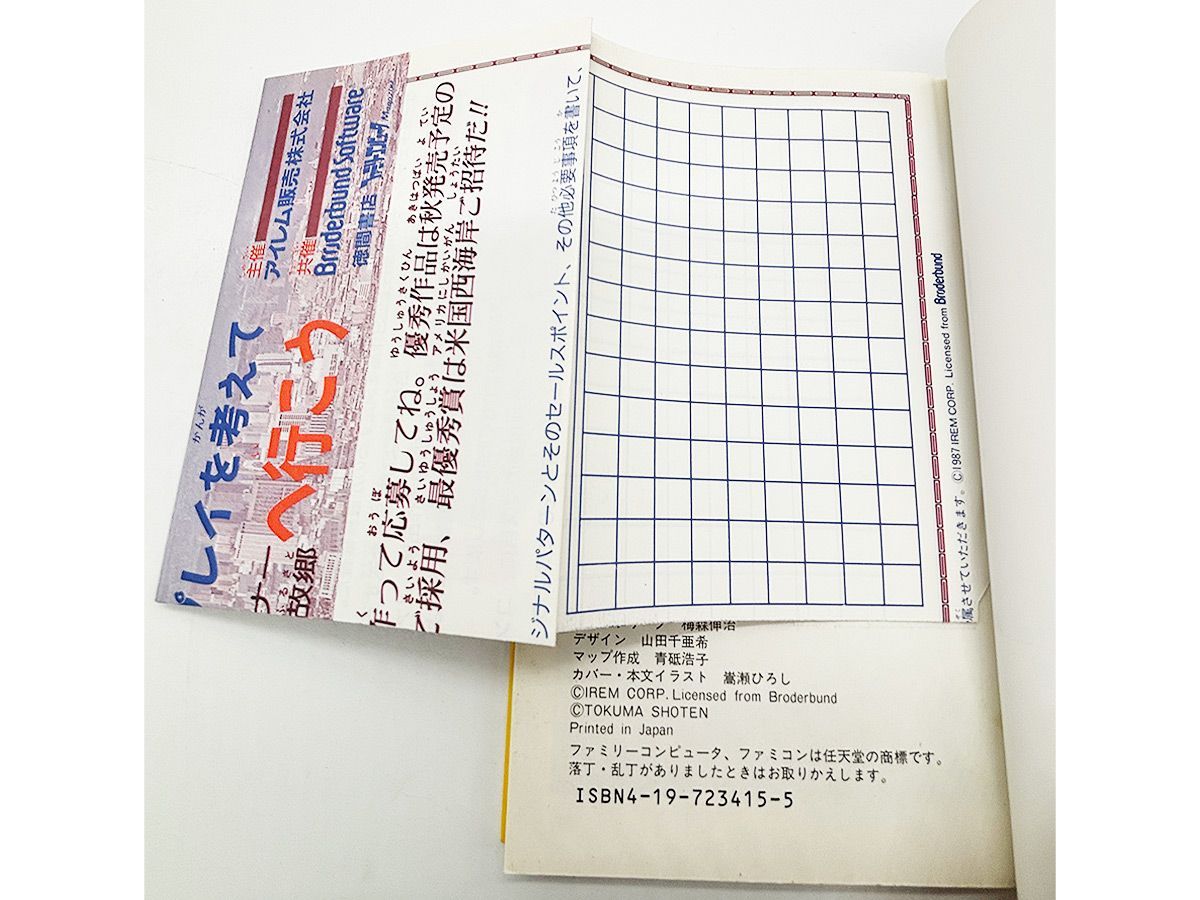 プレイを考えて
かんが
へ行こう
ナー故郷
ふるさと
主催
アイレム販売株式会社
共催
Broderbund Software
徳間書店
Magazine
作って応募してね。優秀作品は秋発売予定の
おうぼ ゆうしゅうさくひん あきはつばいよてい
ご採用、最優秀賞は米国西海岸ご招待だ!!
さいよう さいゆうしゅうしょう アメリカにしかいがん しょうたい
ジナルパターンとそのセールスポイント、その他必要事項を書いて、
属させていただきます。©1987 IREM CORP. Licensed from Broderbund
梅森伸治
デザイン 山田千亜希
マップ作成 青砥浩子
カバー・本文イラスト 嵩瀬ひろし
©IREM CORP. Licensed from Broderbund
©TOKUMA SHOTEN
Printed in Japan
ファミリーコンピュータ、ファミコンは任天堂の商標です。
落丁・乱丁がありましたときはお取りかえします。
ISBN4-19-723415-5